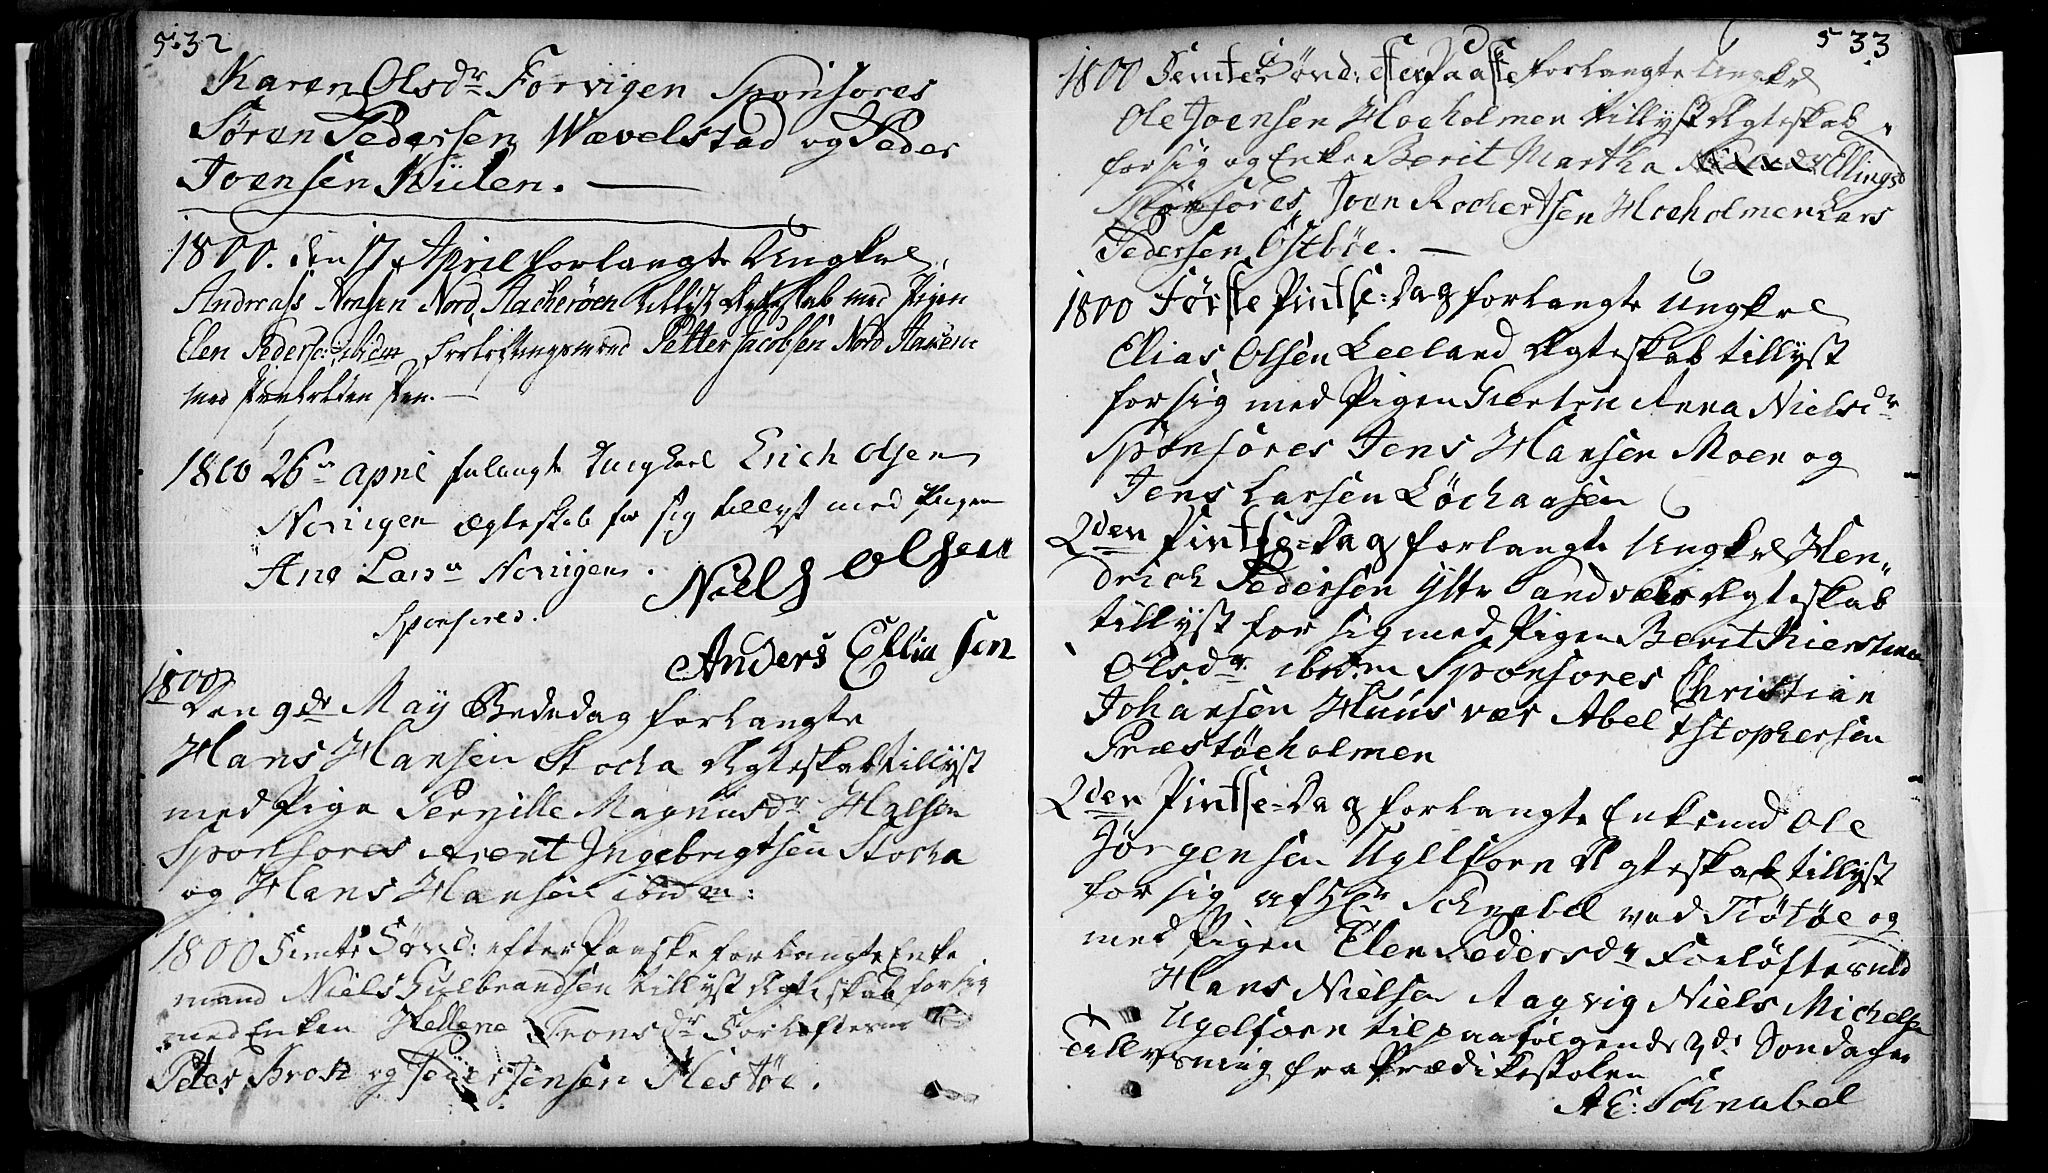 532
Karen Olsdr Forvigen Sponsores
Søren Pedersen Wævelstad og Peder
Joensen Kiilen.
1800. den 17 April forlangte Ungkrl
Andreas Nord tillist Ægteskab med Pigen
Elen Peders: ibidm Petter Jacobsen Nord
med
1800 26de April forlangte Ungkarl Erich Olsen
Norvigen Ægteskab for sig tillyst med Pigen
Ane Larsdr Norvigen.
Niels Olsen
Sponsores.
Anders Elliasen
1800
Den 9de May Bededag forlangte
Hans Hansen Stocka Ægteskab tillyst
med Pige Pernille Magnusdr Halsen
Sponsores Arent Ingebrigtsen Stocka
og Hans Hansen ibidem:
1800 Femte Sønd: efter Paaske forlangte Enke
mand Niels Gulbrandsen tillyst Ægteskab for sig
med Enken Hellene Tronsdr Forløftere
Peter Broch og Peder Jensen Flestøe.
533
1800 Femte Sønd: efter Paaske forlangte Ungkrl
Ole Joensen Hoeholmen tillyst Ægteskab
for sig og Enke Berit Martha Ellingsd
Sponsores Joen Hoeholmen Lars
Pedersen Østbøe.
1800 Første Pintse-Dag forlangte Ungkrl
Elias Olsen Leeland Ægteskab tillyst
for sig med Pigen Gierten Anna Nielsdr
Sponsores Jens Hansen Moen og
Jens Larsen Løchaasen
2den Pintse-Dag forlangte Ungkrl Hen„
drich Pedersen Yttr Sandvær Ægteskab
tillyst for sig med Pigen Berit Kierstina
Olsdr ibidm Sponsores Christian
Johansen Huusvær Abel Christophersen
Præstøeholmen
2den Pintse-Dag forlangte Enkemd Ole
Jørgensen Ugelforn Ægteskab tillyst
for sig af Hr Schnabel ved Tiøtøe og
med Pigen Elen Pedersdr Forløftesmd
Hans Nielsen Aagvig Niels Michelsen
Ugelforn til paafølgende 3de Søndager
Tillysning fra Prædikestolen
A E: Schnabel